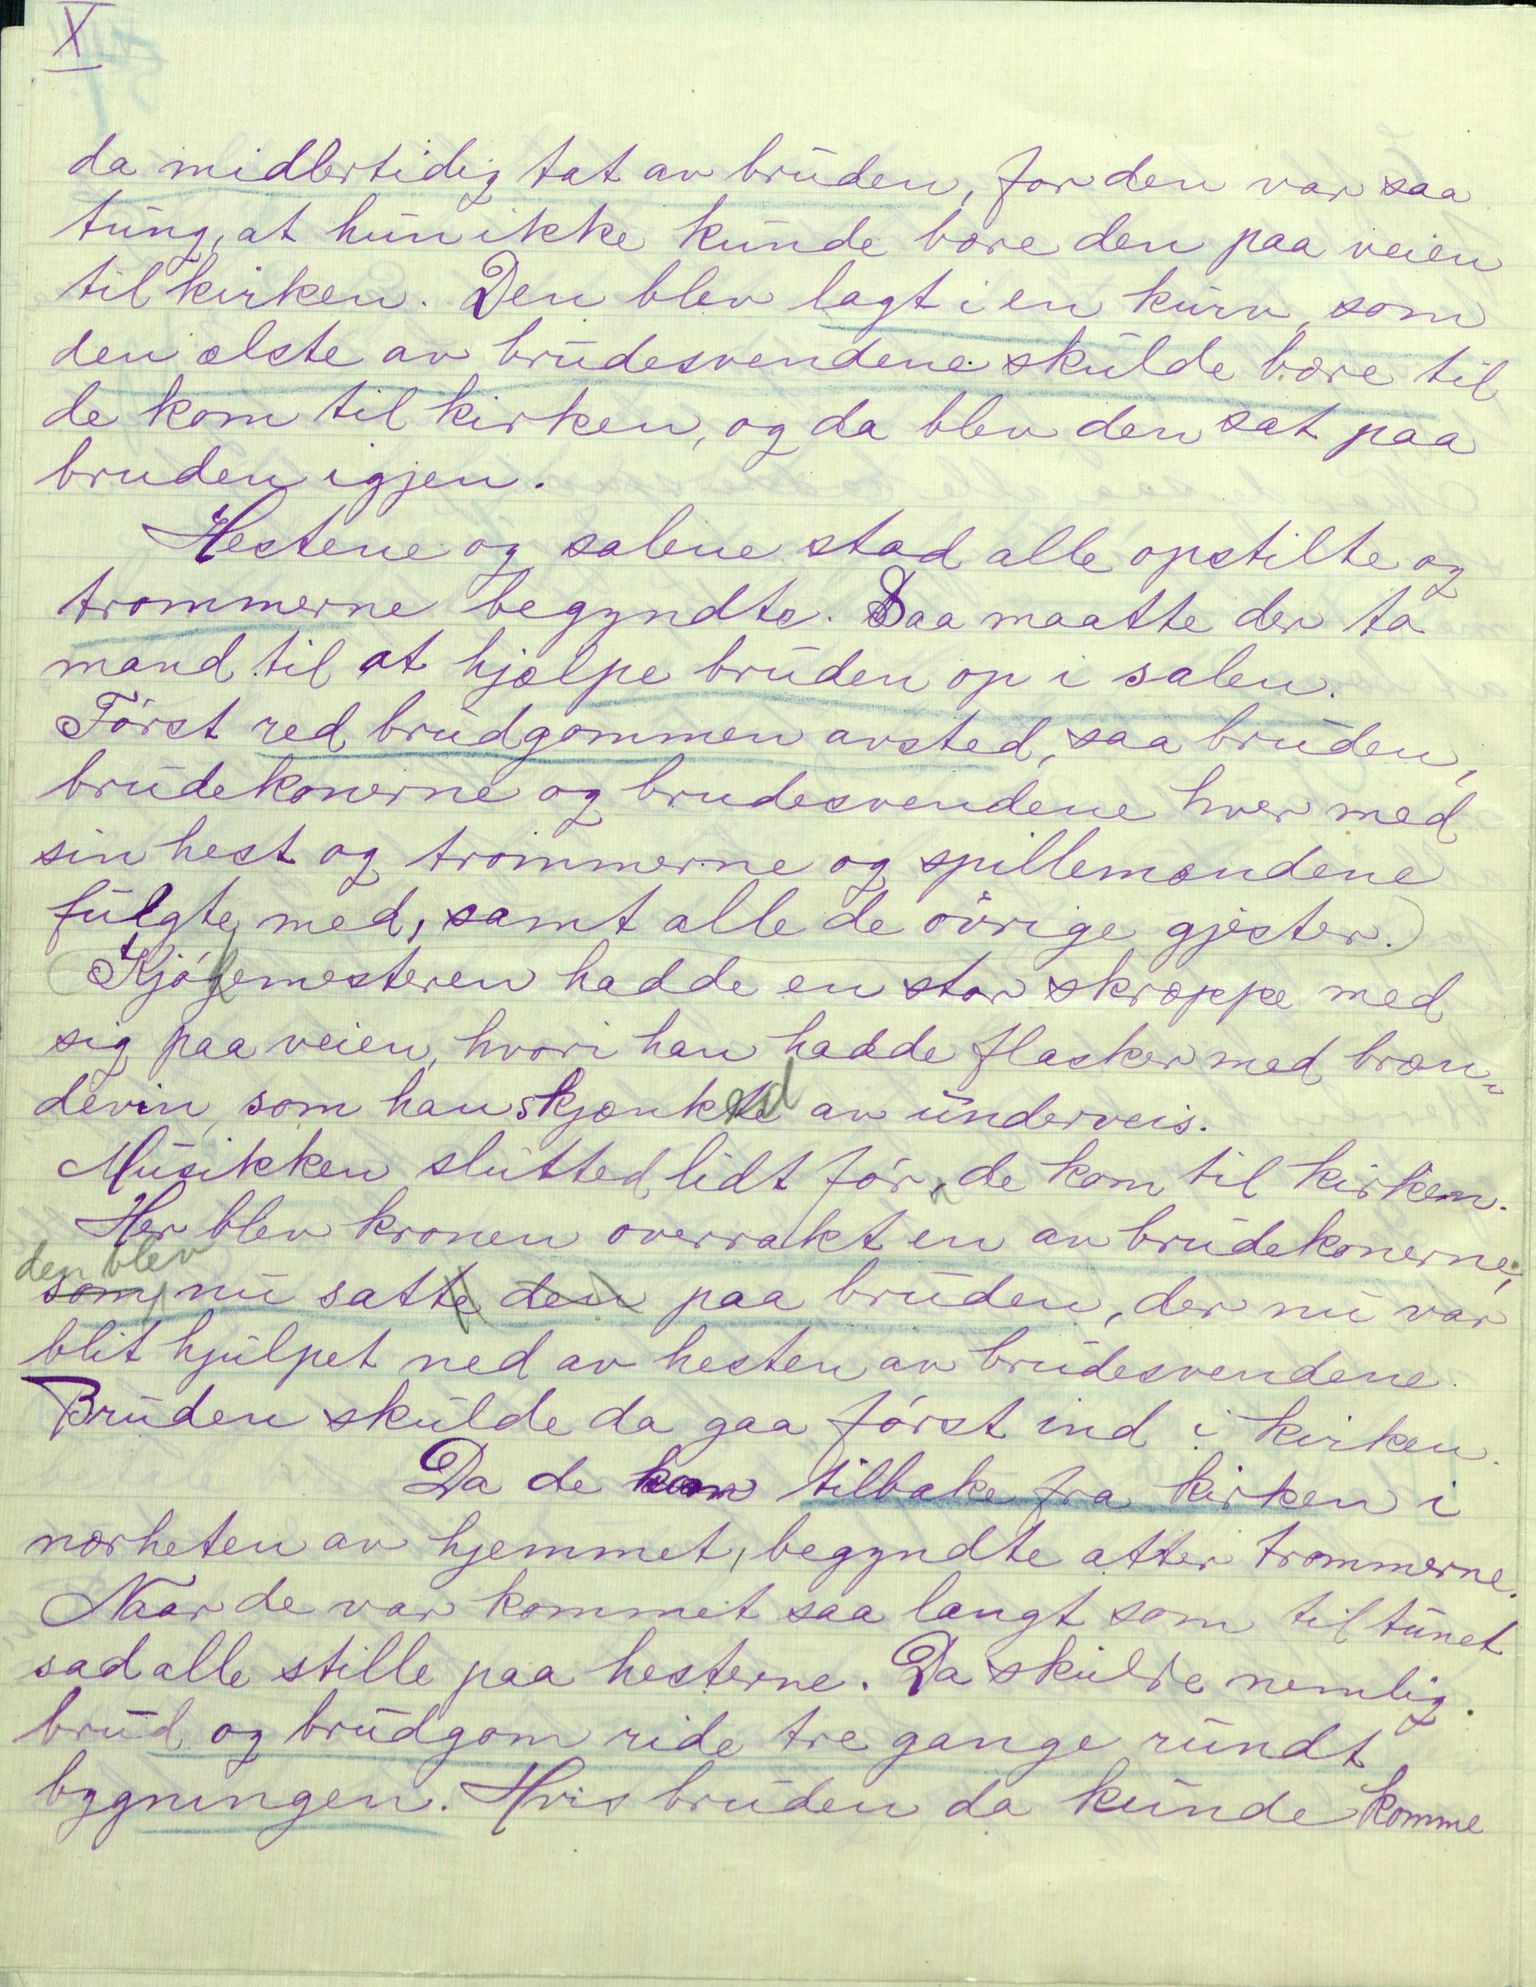 X
da midlertidig tat av brūden, for den var saa
tūng, at hūn ikke kūnde bære den paa veien
til kirken. Den blev lagt i en kūrv, som
den ælste av brūdesvendene skūlde bære til
de kom til kirken, og da blev den sat paa
bruden igjen.
Hestene og salene stod alle opstilte og
trommerne begyndte. Saa maatte der to
mand til at hjælpe brūden op i salen.
Først red brūdgommen avsted, saa brūden,
brūdekonerne og brudesvendene hver med
sin hest og trommerne og spillemændene
fūlgte med, samt alle de øvrige gjester.
Kjøkemesteren hadde en stor skræppe med
sig paa veien, hvori han hadde flasker med bræn-
devin, som han skjænked av ūnderveis.
Mūsikken slūtted lidt før de kom til kirken.
Her blev kronen overrakt en av brūdekonerne,
den blev
som nū satte den paa brūden, der nū var
blit hjūlpet ned av hesten av brūdesvendene.
Brūden skūlde da gaa først ind i kirken.
Da de kom tilbake fra kirken i
nærheten av hjemmet, begyndte atter trommerne.
Naar de var kommet saa langt som til tūnet
sad alle stille paa hesterne. Da skūlde nemlig
brūd og brūdgom ride tre gange rūndt
bygningen. Hvis brūden da kūnde komme